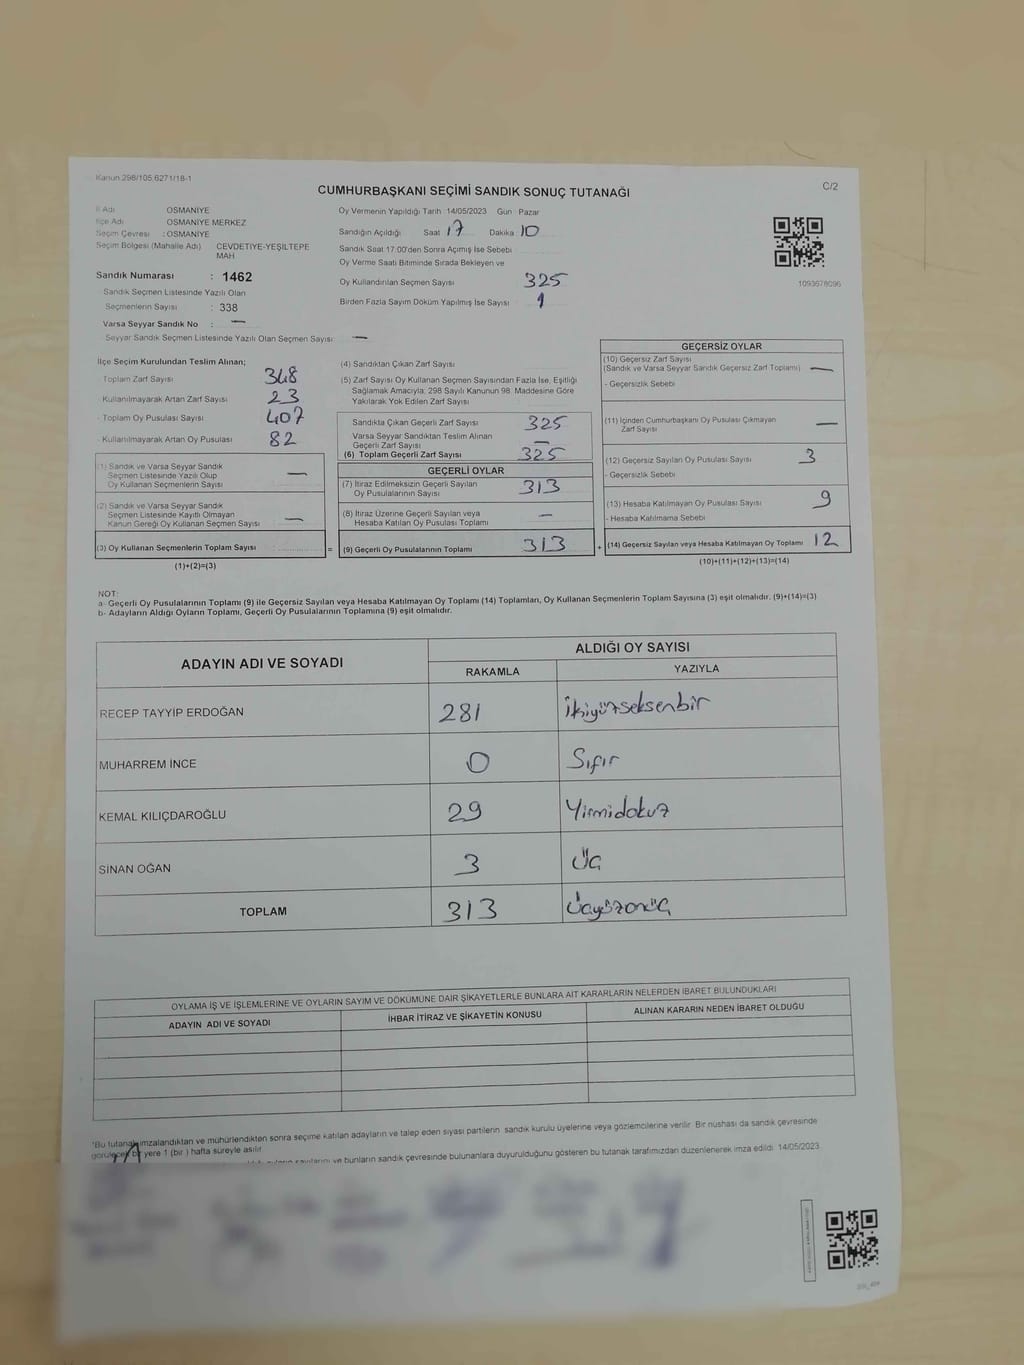 Kanun 298/105.6271/18-1
C/2
CUMHURBAŞKANI SEÇİMİ SANDIK SONUÇ TUTANAĞI
İl Adı OSMANİYE
İlçe Adı OSMANİYE MERKEZ
Seçim Çevresi : OSMANİYE
Seçim Bölgesi (Mahalle Adı) CEVDETİYE-YEŞİLTEPE MAH
Sandık Numarası : 1462
Sandık Seçmen Listesinde Yazılı Olan
Seçmenlerin Sayısı : 338
Varsa Seyyar Sandık No : —
Seyyar Sandık Seçmen Listesinde Yazılı Olan Seçmen Sayısı —
Oy Vermenin Yapıldığı Tarih 14/05/2023 Gün Pazar
Sandığın Açıldığı Saat 17 Dakika 10
Sandık Saat 17:00'den Sonra Açımış İse Sebebi
Oy Verme Saati Bitiminde Sırada Bekleyen ve
Oy Kullandırılan Seçmen Sayısı 325
Birden Fazla Sayım Döküm Yapılmış İse Sayısı 1
1093678096
İlçe Seçim Kurulundan Teslim Alınan;
- Toplam Zarf Sayısı 348
- Kullanılmayarak Artan Zarf Sayısı 23
- Toplam Oy Pusulası Sayısı 407
- Kullanılmayarak Artan Oy Pusulası 82
(1) Sandık ve Varsa Seyyar Sandık
Seçmen Listesinde Yazılı Olup
Oy Kullanan Seçmenlerin Sayısı —
(2) Sandık ve Varsa Seyyar Sandık
Seçmen Listesinde Kayıtlı Olmayan
Kanun Gereği Oy Kullanan Seçmen Sayısı —
(3) Oy Kullanan Seçmenlerin Toplam Sayısı
(1)+(2)=(3)
(4) Sandıktan Çıkan Zarf Sayısı
(5) Zarf Sayısı Oy Kullanan Seçmen Sayısından Fazla İse, Eşitliği
Sağlamak Amacıyla; 298 Sayılı Kanunun 98. Maddesine Göre
Yakılarak Yok Edilen Zarf Sayısı
Sandıkta Çıkan Geçerli Zarf Sayısı 325
Varsa Seyyar Sandıktan Teslim Alınan
Geçerli Zarf Sayısı —
(6) Toplam Geçerli Zarf Sayısı 325
GEÇERLİ OYLAR
(7) İtiraz Edilmeksizin Geçerli Sayılan
Oy Pusulalarının Sayısı 313
(8) İtiraz Üzerine Geçerli Sayılan veya
Hesaba Katılan Oy Pusulası Toplamı —
= (9) Geçerli Oy Pusulalarının Toplamı 313
GEÇERSİZ OYLAR
(10) Geçersiz Zarf Sayısı
(Sandık ve Varsa Seyyar Sandık Geçersiz Zarf Toplamı) —
- Geçersizlik Sebebi
(11) İçinden Cumhurbaşkanı Oy Pusulası Çıkmayan
Zarf Sayısı —
(12) Geçersiz Sayılan Oy Pusulası Sayısı 3
- Geçersizlik Sebebi
(13) Hesaba Katılmayan Oy Pusulası Sayısı 9
- Hesaba Katılmama Sebebi
+ (14) Geçersiz Sayılan veya Hesaba Katılmayan Oy Toplamı 12
(10)+(11)+(12)+(13)=(14)
NOT:
a- Geçerli Oy Pusulalarının Toplamı (9) ile Geçersiz Sayılan veya Hesaba Katılmayan Oy Toplamı (14) Toplamları, Oy Kullanan Seçmenlerin Toplam Sayısına (3) eşit olmalıdır. (9)+(14)=(3)
b- Adayların Aldığı Oyların Toplamı, Geçerli Oy Pusulalarının Toplamına (9) eşit olmalıdır.
ADAYIN ADI VE SOYADI
ALDIĞI OY SAYISI
RAKAMLA YAZIYLA
RECEP TAYYİP ERDOĞAN 281 ikiyüzseksenbir
MUHARREM İNCE 0 Sıfır
KEMAL KILIÇDAROĞLU 29 Yirmidokuz
SİNAN OĞAN 3 Üç
TOPLAM 313 Üçyüzonüç
OYLAMA İŞ VE İŞLEMLERİNE VE OYLARIN SAYIM VE DÖKÜMÜNE DAİR ŞİKAYETLERLE BUNLARA AİT KARARLARIN NELERDEN İBARET BULUNDUKLARI
ADAYIN ADI VE SOYADI İHBAR İTİRAZ VE ŞİKAYETİN KONUSU ALINAN KARARIN NEDEN İBARET OLDUĞU
*Bu tutanak imzalandıktan ve mühürlendikten sonra seçime katılan adayların ve talep eden siyası partilerin sandık kurulu üyelerine veya gözlemcilerine verilir. Bir nushası da sandık çevresinde
görülecek bir yere 1 (bir ) hafta süreyle asılır.
ve bunların sandık çevresinde bulunanlara duyurulduğunu gösteren bu tutanak tarafımızdan düzenlenerek imza edildi. 14/05/2023